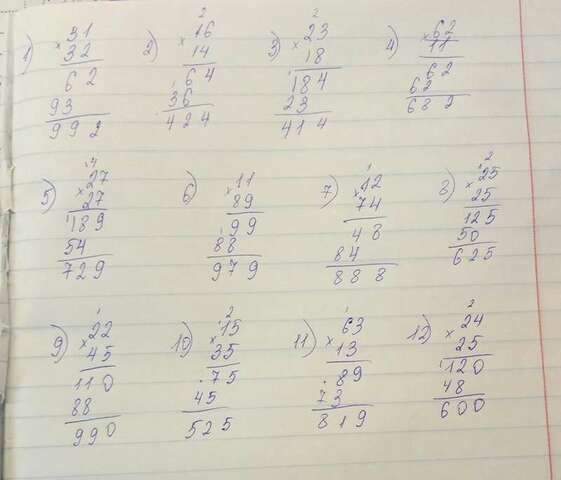 1) × 31
32
62
93
992
2) 2
× 16
14
64
1
36
424
3) 2
× 23
18
184
23
414
4) × 62
11
62
62
682
5) 14
× 27
27
189
54
729
6) × 11
89
99
88
979
7) 1
× 12
74
48
84
888
8) 2
× 25
25
125
50
625
9) 1
× 22
45
110
88
990
10) 2
× 15
35
75
45
525
11) × 63
13
89
73
819
12) 2
× 24
25
120
48
600